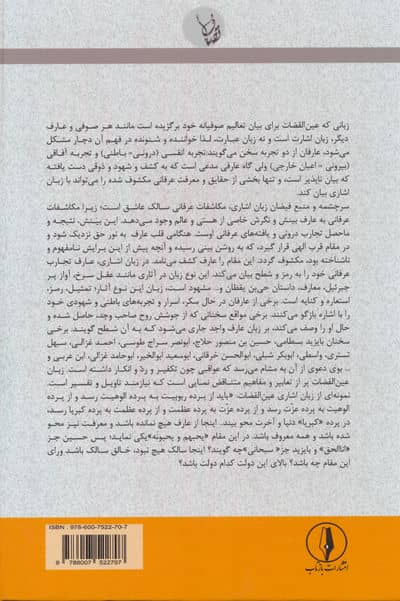 زبانی که عین‌القضات برای بیان تعالیم صوفیانه خود برگزیده است مانند هر صوفی و عارف
دیگر، زبان اشارت است و نه زبان عبارت، لذا خواننده و شنونده در فهم آن دچار مشکل
می‌شود، عارفان از دو تجربه سخن می‌گویند:تجربه انفسی (درونی- باطنی) و تجربه آفاقی
(بیرونی - اعیان خارجی) ولی گاه عارفی مدعی است که به کشف و شهود و ذوقی دست یافته
که بیان ناپذیر است، و تنها بخشی از حقایق و معرفت عرفانی مکشوف شده را می‌تواند با زبان
اشاری بیان کند.
سرچشمه و منبع فیضان زبان اشاری، مکاشفات عرفانی سالک عاشق است؛ زیرا مکاشفات
عرفانی به عارف بینش و نگرش خاصی از هستی و عالم وجود می‌دهد. این بینش، نتیجه و
ماحصل تجارب درونی و یافته‌های عرفانی اوست. هنگامی قلب عارف به نور حق نزدیک شود و
در مقام قرب الهی قرار گیرد، که به روشن بینی رسیده و آنچه پیش از این برایش نامفهوم و
ناشناخته بود، مکشوف گردد. این مقام را عارف کشف می‌نامد. در زبان اشاری، عارف تجارب
عرفانی خود را به رمز و شطح بیان می‌کند. این نوع زبان در آثاری مانند عقل سرخ، آواز پر
جبرئیل، معارف، داستان حی‌بن یقظان و... مشهود است، زبان این نوع آثار؛ تمثیل، رمز،
استعاره و کنایه است. برخی از عارفان در حال سکر، اسرار و تجربه‌های باطنی و شهودی خود
را با اشاره بازگو می‌کنند. برخی مواقع سخنانی که از جوشش روح صاحب وجد، حاصل شده و
حال او را وصف می‌کند، بر زبان عارف واجد جاری می‌شود کـه بـه آن شطح گویند. برخی
سخنان بایزید بسطامی، حسین بن منصور حلاج، ابونصر سراج طوسی، احمد غزالی، سهل
تستری، واسطی، ابوبکر شبلی، ابوالحسن خرقانی، ابوسعید ابوالخیر، ابوحامد غزالی، ابن عربی و
... بوی دعوی از آن به مشام می‌رسد که عواقبی چون تکفیر و رد و انکار داشته است. زبان
عین‌القضات پر از تعابیر و مفاهیم متناقض نمایی است کـه نیازمند تاویل و تفسیر است.
نمونه‌ای از زبان اشاری عین‌القضات: «باید از پرده ربوبیت به پرده الوهیت رسد و از پرده
الوهیت به پرده عزّت رسد و از پرده عزّت به پرده عظمت و از پرده عظمت به پرده کبریا رسد،
در پرده «کبریا» دنیا و آخرت محو بیند. اینجا از عارف هیچ نمانده باشد و معرفت نیز محو
شده باشد و همه معروف باشد. در این مقام «یحبهم و یحبونه»یکی نماید؛ پس حسین جز
«اناالحق» و بایزید جز« سبحانی»چه گویند؟ اینجا سالک هیچ نبود، خالق سالک باشد ورای
این مقام چه باشد؟ بالای این دولت کدام دولت باشد؟
ISBN : 978-600-7522-70-7
9 786007 522707
انتشارات بازتاب